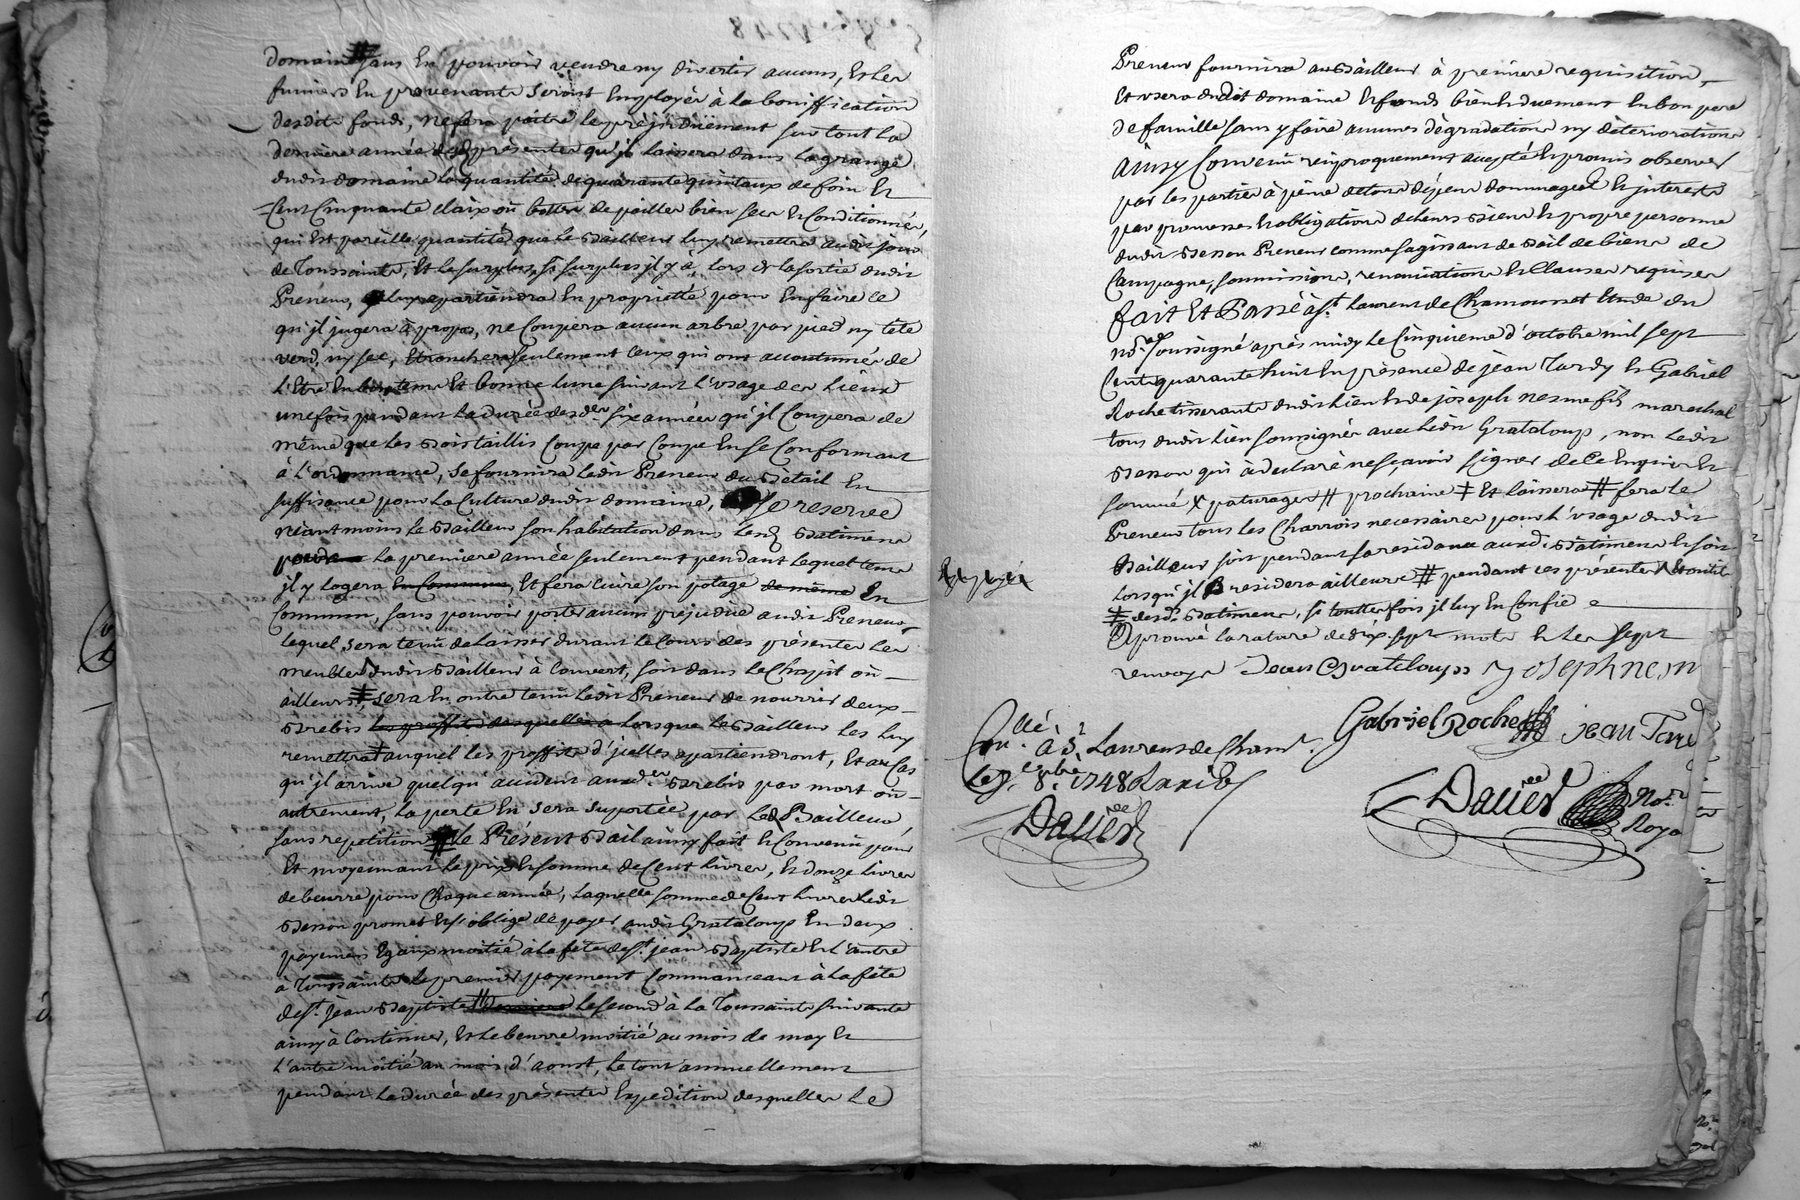 domaine sans En pouvoir vendre ny divertir aucuns, Et les
fumiers En provenants seront Employés à la bonniffication
desdits fonds, ne fera paitre le pré sur tout la
derniere année des présentes qu'jl laissera dans la grange
dudit domaine la quantité de quarante quintaux de foin Et
Cent Cinquante claix où bottes de pailles bien sec Et Conditionnés,
qui Est pareille quantité que le Bailleur luy remettra audit jour
de Toussaints, Et le surplus, si surplus jl y à, lors de la sortie dudit
Preneur, luy apartiendra En proprietté pour En faire ce
qu'jl jugera à propos, ne Coupera aucun arbre par pied ny tête
verd, ny sec, Ebranchera seulement Ceux qui ont accoutumés de
L'Etre En bon tems Et bonne lune suivant L'usage des Lieux
une fois pendant la durée desd. six années qu'jl Coupera de
même que les Bois taillis Coupe par Coupe En se Conformant
à L'ordonnance, se fournira ledit Preneur du Bétail En
suffisance pour la Culture dudit domaine, se reserve
néantmoins le Bailleur son habitation dans lesd. Batimens
la premiere année seulement pendant lequel tems
jl y logera En Commun, Et fera Cuire son potage de même En
Commun, sans pouvoir porter aucun préjudice audit Preneur
lequel sera tenü de laisser durant le Cours des présentes les
meubles dudit Bailleur à Couvert, soit dans le Chapit où
ailleurs ‡ sera En outre tenü ledit Preneur de nourrir deux
Brebis les proffits desquelles a lorsque le Bailleur les luy
remettra ‡ auquel les proffits d'jcelles apartiendront, Et au Cas
qu'jl arrive quelqu'accident auxd. Brebis par mort où
autrement, la perte En sera suportée par led. Bailleur,
sans repetition # Le Présent Bail ainsy fait Et Convenü pour
Et moyennant le prix Et somme de Cent livres, Et douze livres
de beurre pour Chaque année, laquelle somme de Cent livres ledit
Besson promet Et s'oblige de payer audit Grataloup En deux
payemens Egaux moitié à la fête de St. jean Baptiste Et L'autre
à Toussaints le premier payement Commanceant à la fête
de St. jean Baptiste # le second à la Toussaints suivante
ainsy à Continuer, Et le beurre moitié au mois de may Et
L'autre moitié au mois d'aoust, le tout annuellement
pendant la durée des présentes Expedition desquelles le
Preneur fournira au Bailleur à premiere requisition,
Et usera dudit domaine Et fonds bien Et duement En bon pere
de famille sans y faire aucunes dégradations ny déteriorations
ainsy Convenü reciproquement accepté Et promis observer
par les parties à peine de tous dépens dommages Et interests
par promesses Et obligation de leurs Biens Et propre personne
dudit Besson Preneur comme s'agissant de Bail de biens de
Campagne, soumissions, renonciations Et Clauses requises
fait Et Passé à St. Laurens de Chamousset Etude du
no.re soussigné après midy le Cinquieme d'octobre mil sept
Cent quarante huit En présence de jean Tardy Et Gabriel
Roche tisserants dudit lieu Et de joseph nesme fils marechal
tous dudit lieu soussignés avec ledit Grataloup, non ledit
Besson qui à déclaré ne scavoir signer de Ce Enquis Et
sommé x paturages # prochaine ‡ Et laissera # fera le
Preneur tous les Charrois necessaires pour L'usage dudit
Bailleur soit pendant sa residance auxd. Batimens Et soit
Lorsqu'jl residera ailleurs # pendant ces présentes
‡ desd. Batimens, si touttes fois jl luy En Confie
Aprouvé la rature de dix sept mots Et les sept
renvoys Jean Grataloup Josephnesm
Gabriel Roche jean Tard
Davier No.re
Roya
Con.llé à St. Laurens de Cham.t
Le 8.bre 1748
Davier